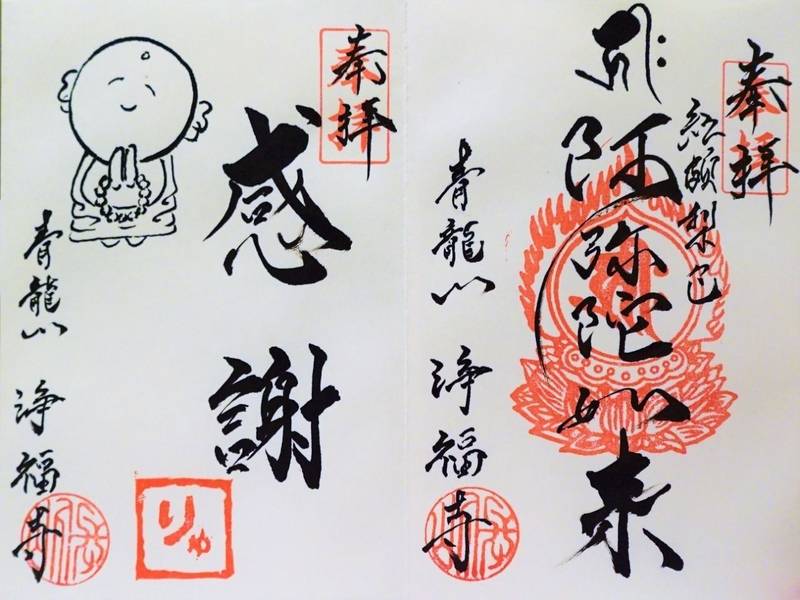 奉拝
紅頗梨色
阿弥陀如来
青龍山 浄福寺
奉拝
感謝
青龍山 浄福寺
りゅ